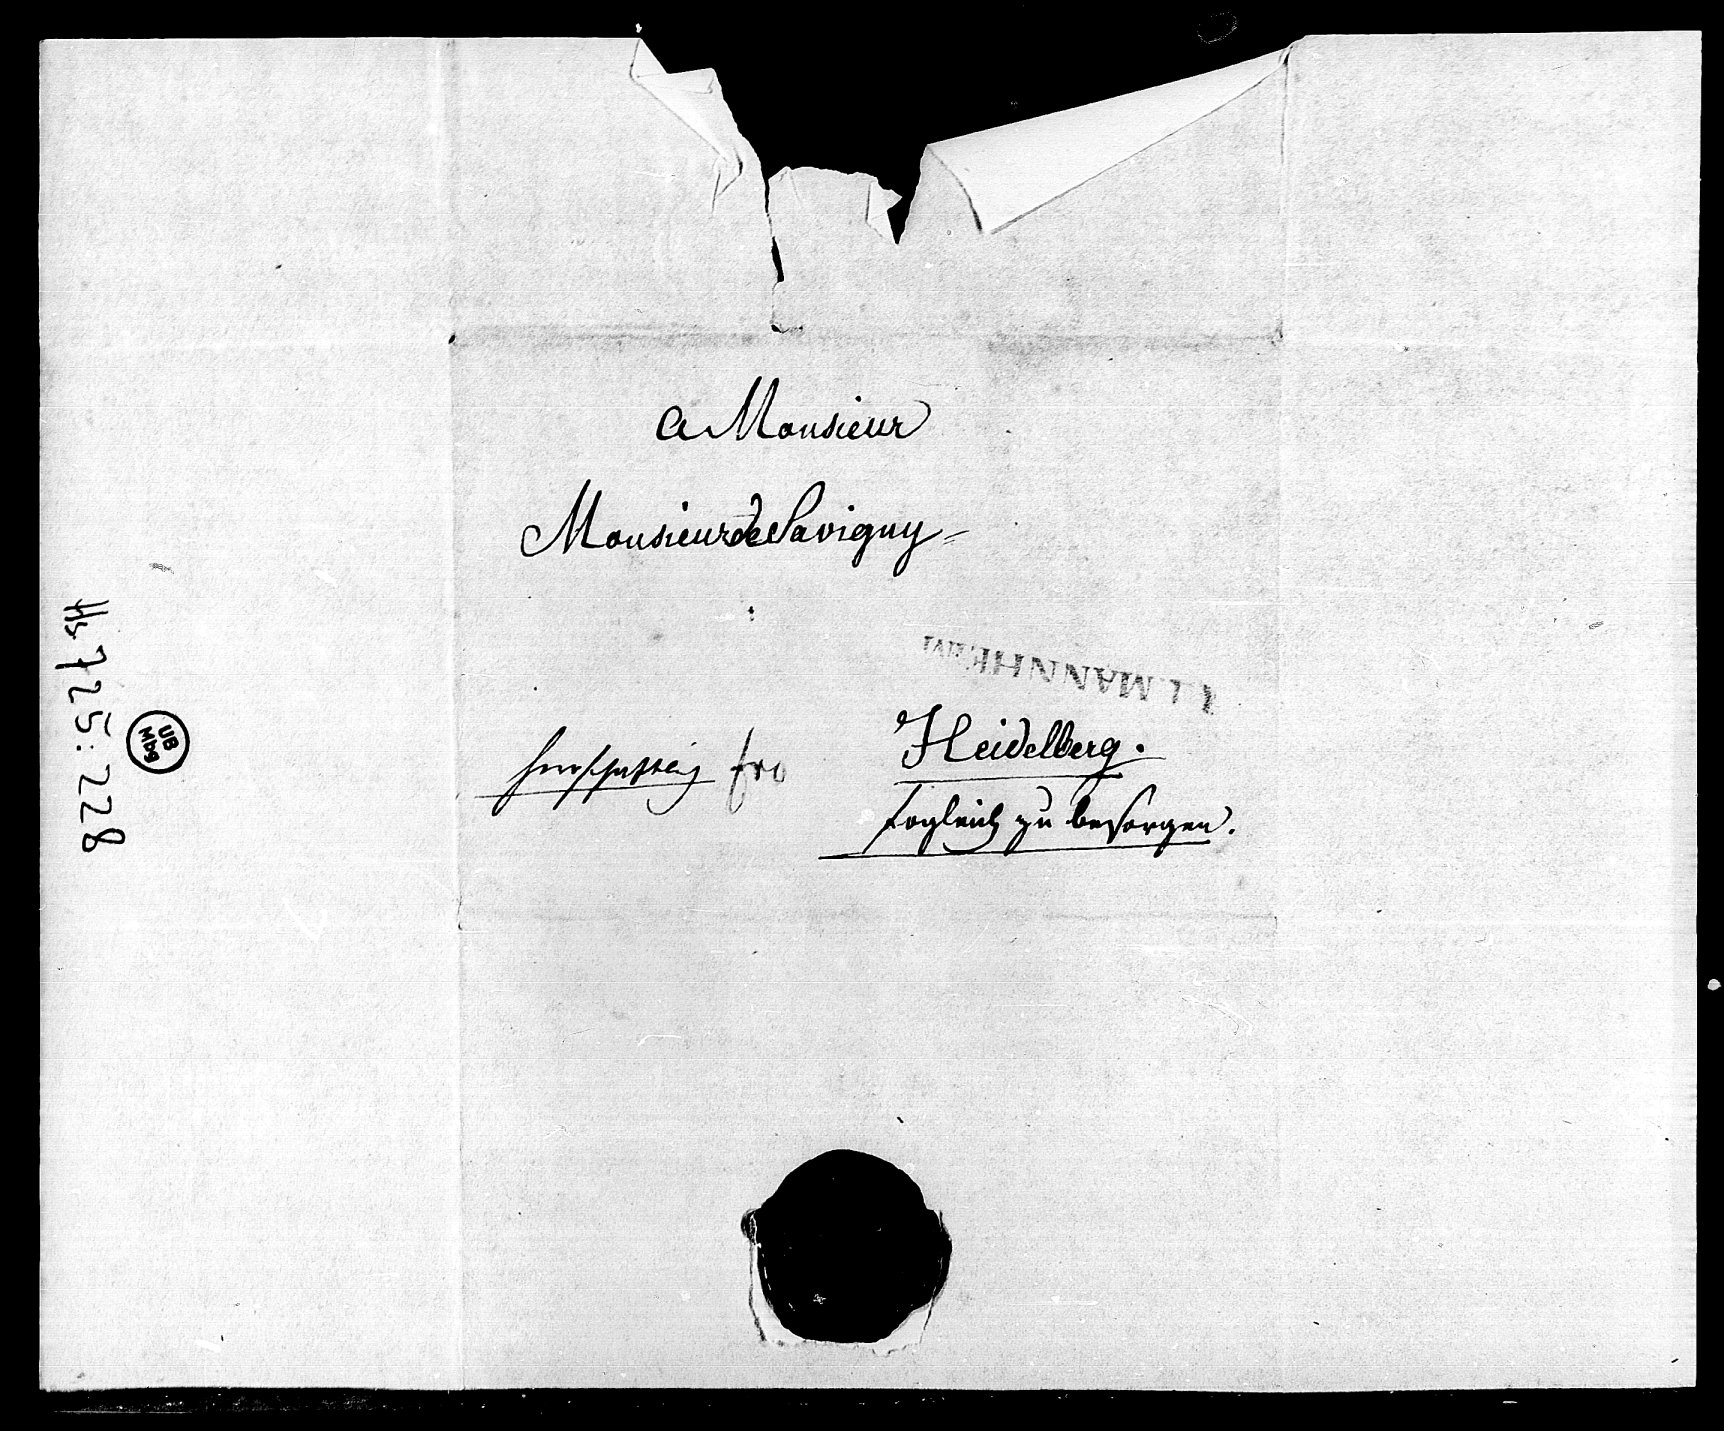 a Monsieur
Monsieur de Savigny =
R. MANNHEIM
fro
Heidelberg.
sogleich zu besorgen.
Hs 725:228
UB
Mbg